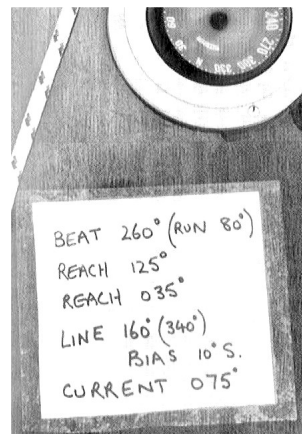 240
270
300
330
N
30
60
BEAT 260° (RUN 80°)
REACH 125°
REACH 035°
LINE 160° (340°)
BIAS 10° S.
CURRENT 075°